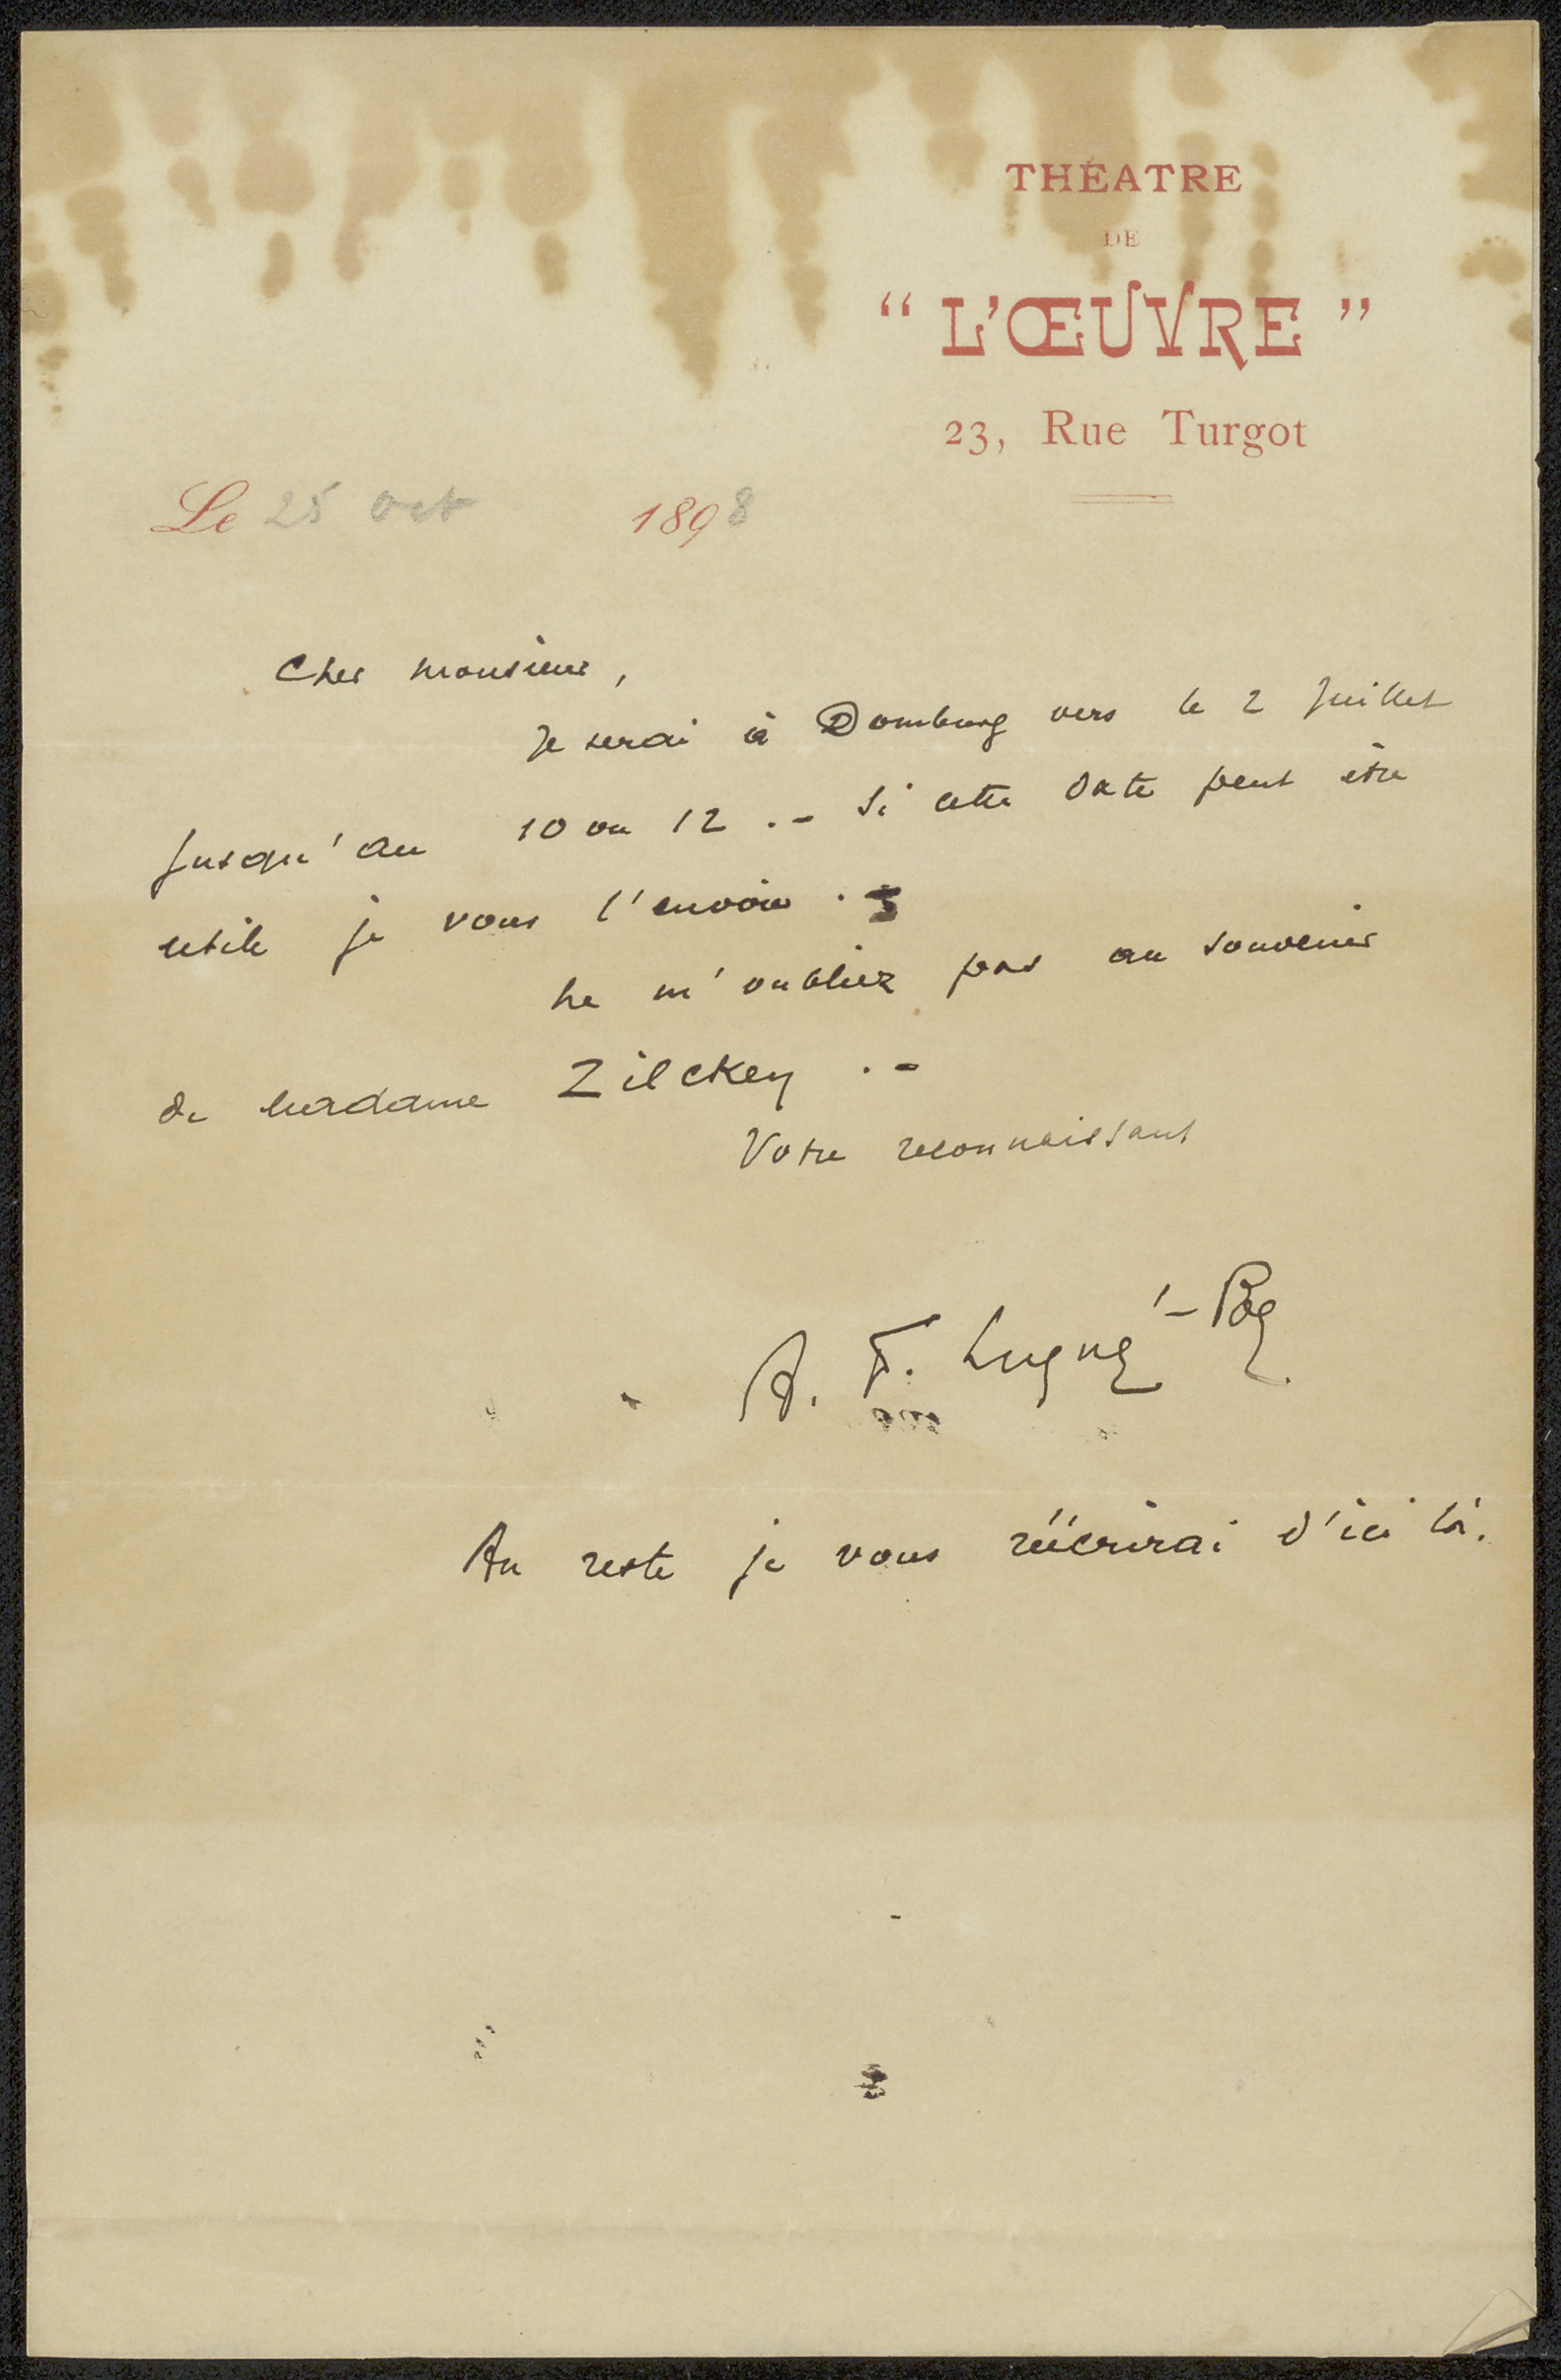 THÉATRE
DE
“ L'ŒUVRE ”
23, Rue Turgot
Le 25 oct 1898
Cher Monsieur,
Je serai à Domburg vers le 2 Juillet
jusqu'au 10 ou 12 . - Si cette date peut être
utile je vous l'envoie . -
Ne m'oubliez pas au souvenir
de Madame Zilcken . -
Votre reconnaissant
A. F. Lugné-Poe
Au reste je vous réécrirai d'ici là.